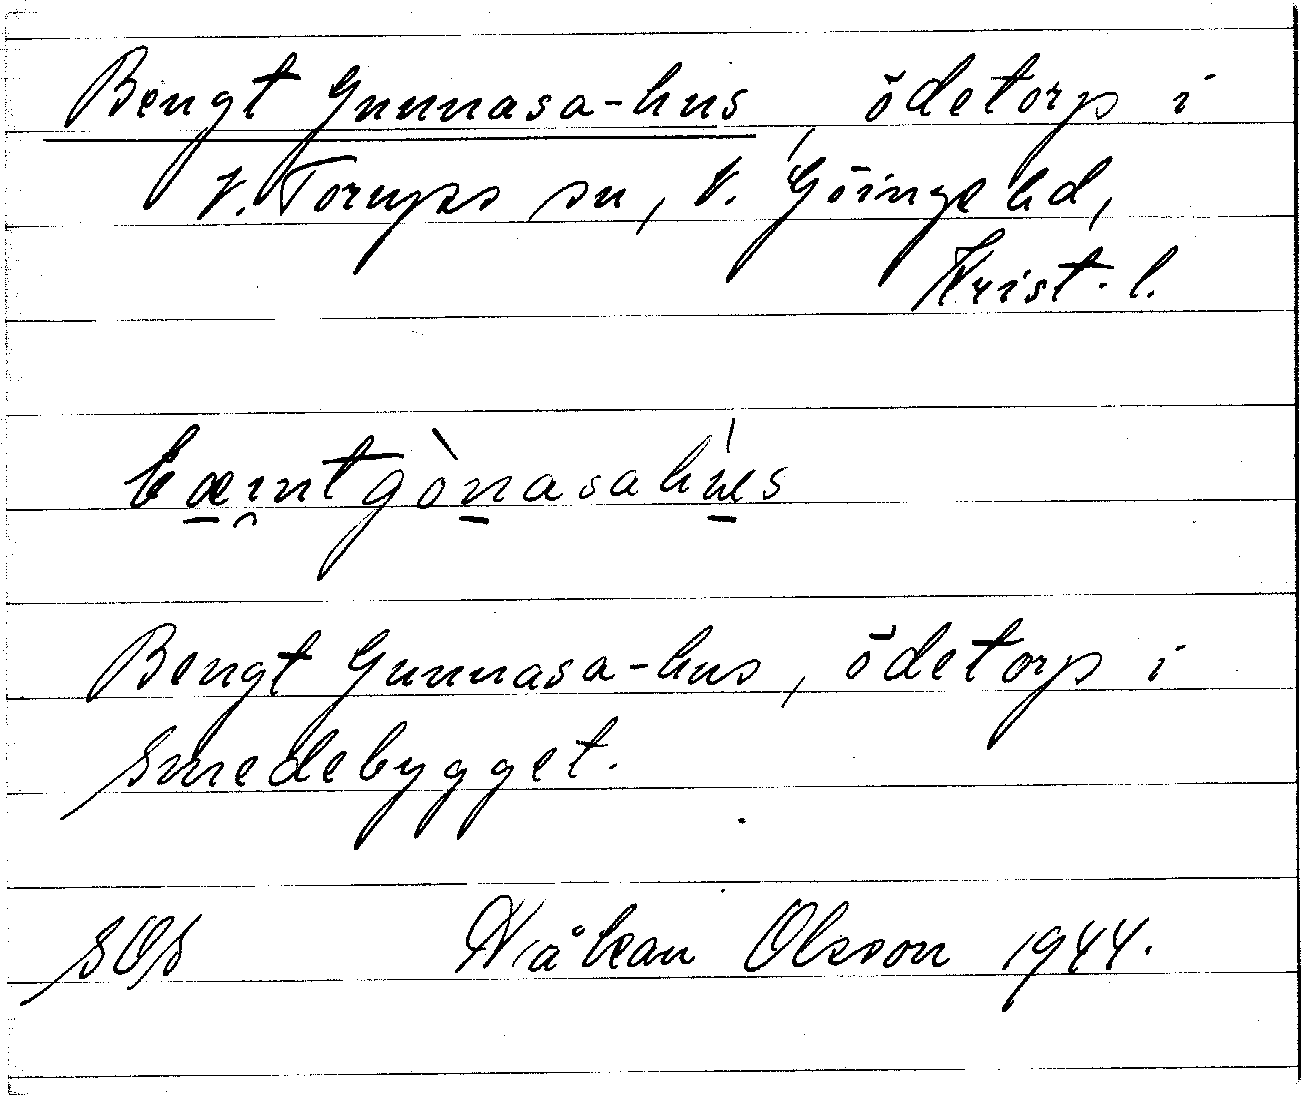 Bengt Gunnasa-hus, ödetorp i
V. Torups sn, V. Göinge hd,
Krist. l.
bæi̯ntgònasahu̍s
Bengt Gunnasa-hus, ödetorp i
Smedebygget.
SOS Håkan Olsson 1944.